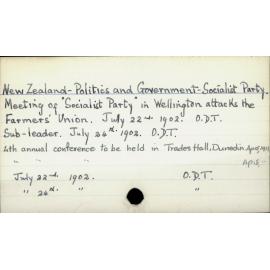 New Zealand - Politics and Government - Socialist Party.
Meeting of "Socialist Party" in Wellington attacks the
Farmers' Union. July 22nd. 1902. O.D.T.
Sub-leader. July 24th. 1902. O.D.T.
4th annual conference to be held in Trades Hall, Dunedin
" "
July 22nd. 1902. O.D.T.
" 24th. " "